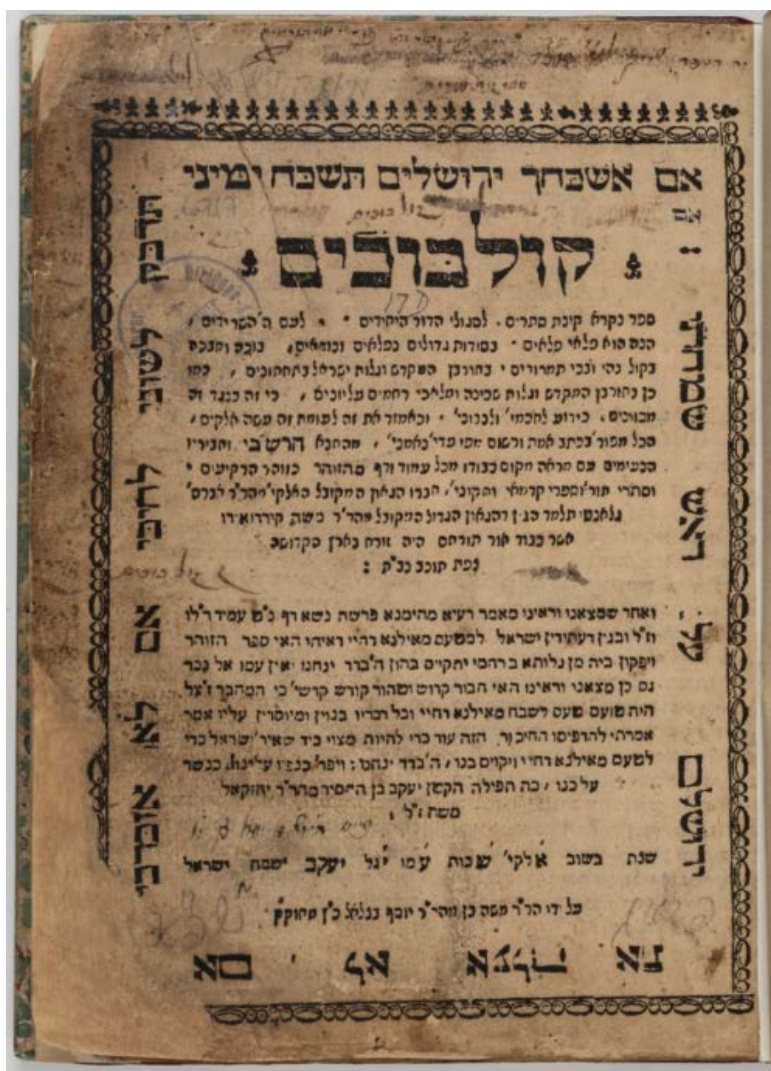 אם אשכחך ירושלים תשכח ימיני
תדבק לשוני לחיכי אם לא אזכרכי
אם לא אעלה את
ירושלם על ראש שמחתי
קול בוכים
ספר נקרא קינת סתרים . לסגולי הדור היחידים לעם ה' השרידים ,
הנה הוא פלאי פלאים בסודות גדולים נפלאים ונוראים , בוכה ומבכה
בקול נהי ובכי תמרורים בחורבן המקדש וגלות ישראל בתחתונים , כמו
כן בחורבן המקדש וגלות שכינה ומלאכי רחמים עליונים , כי זה כנגד זה
מכוונים . כידוע לחכמי' ולנבוני' וכאמור את זה לעומת זה עשה אלקים ,
הכל מפור' בכתב אמת ורשום מפי עדי' נאמני' , מהתנא הרשב"י וחביריו
הנעימים עם מראה מקום כבודו מכל עמוד ודף מהזוהר כזוהר הרקיעים
וסתרי תור' וספרי קדמאי ותקוני' , חברו הגאון המקובל האלקי' מהר"ר אברם'
גלאנטי תלמד הגאון הגדול המקובל מהר"ר משה קורדואירו
אשר כבוד אור תורתם היה זורח בארץ הקדושה
צפת תובב בב"א :
ואחר שמצאנו וראינו מאמר רעיא מהימנא פרשת נשא דף
וז"ל ובגין דעתידין ישראל למטעם מאילנא דחיי דאיהו האי ספר הזוהר
ויפקון ביה מן גלותא ברחמי יתקיים בהון ה' בדד ינחנו ואין עמו אל נכר
גם כן מצאנו וראינו האי חבור קדוש וטהור קודש קדשי' כי המחבר ז"צל
היה טועם טעם לשבח מאילנא דחיי וכל דבריו בנוין ומיוסדין עליו אמר
אמרתי להדפיסו הזה עוד כדי להיות מצוי ביד שאר' ישראל כדי
למעם מאילנא דחיי ויקוים בנו , ה' בדד ינחנו ; ויפר' כנפיו עלינו , כנשר
על בנו , כה תפילה הקטן יעקב בן החסיד מהר"ר יחזקאל
משה ז"ל :
שנת בשוב אלקי' שבות עמו יגל יעקב ישמח ישראל
על ידי הר"ר משה בן מהר"ר יוסף בצלאל כ"ץ מחוקק